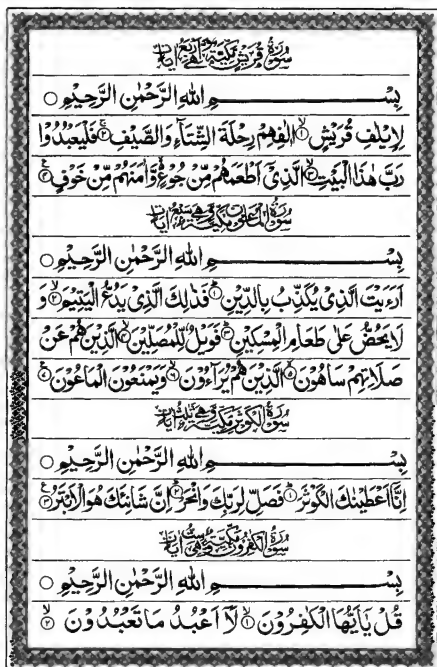 سُوۡرَةُ قُرَيۡشٍ مَّكِّيَّةٌ وَّهِيَ اَرۡبَعُ اٰيَاتٍ
بِسۡــــــــــــمِ اللّٰهِ الرَّحۡمٰنِ الرَّحِيۡمِ ○
لِاِيۡلٰفِ قُرَيۡشٍ ۙ﴿۱﴾ اٖلٰفِهِمۡ رِحۡلَةَ الشِّتَآءِ وَالصَّيۡفِ ۚ﴿۲﴾ فَلۡيَعۡبُدُوۡا
رَبَّ هٰذَا الۡبَيۡتِ ۙ﴿۳﴾ الَّذِيۡۤ اَطۡعَمَهُمۡ مِّنۡ جُوۡعٍ ۙ وَّاٰمَنَهُمۡ مِّنۡ خَوۡفٍ ﴿۴﴾
سُوۡرَةُ الۡمَاعُوۡنِ مَكِّيَّةٌ وَّهِيَ سَبۡعُ اٰيَاتٍ
بِسۡــــــــــــمِ اللّٰهِ الرَّحۡمٰنِ الرَّحِيۡمِ ○
اَرَءَيۡتَ الَّذِيۡ يُكَذِّبُ بِالدِّيۡنِ ؕ﴿۱﴾ فَذٰلِكَ الَّذِيۡ يَدُعُّ الۡيَتِيۡمَ ۙ﴿۲﴾ وَ
لَا يَحُضُّ عَلٰى طَعَامِ الۡمِسۡكِيۡنِ ؕ﴿۳﴾ فَوَيۡلٌ لِّلۡمُصَلِّيۡنَ ۙ﴿۴﴾ الَّذِيۡنَ هُمۡ عَنۡ
صَلَاتِهِمۡ سَاهُوۡنَ ۙ﴿۵﴾ الَّذِيۡنَ هُمۡ يُرَآءُوۡنَ ۙ﴿۶﴾ وَيَمۡنَعُوۡنَ الۡمَاعُوۡنَ ﴿۷﴾
سُوۡرَةُ الۡكَوۡثَرِ مَكِّيَّةٌ وَّهِيَ ثَلٰثُ اٰيَاتٍ
بِسۡــــــــــــمِ اللّٰهِ الرَّحۡمٰنِ الرَّحِيۡمِ ○
اِنَّاۤ اَعۡطَيۡنٰكَ الۡكَوۡثَرَ ؕ﴿۱﴾ فَصَلِّ لِرَبِّكَ وَانۡحَرۡ ؕ﴿۲﴾ اِنَّ شَانِئَكَ هُوَ الۡاَبۡتَرُ ﴿۳﴾
سُوۡرَةُ الۡكٰفِرُوۡنَ مَكِّيَّةٌ وَّهِيَ سِتُّ اٰيَاتٍ
بِسۡــــــــــــمِ اللّٰهِ الرَّحۡمٰنِ الرَّحِيۡمِ ○
قُلۡ يٰۤاَيُّهَا الۡكٰفِرُوۡنَ ۙ﴿۱﴾ لَاۤ اَعۡبُدُ مَا تَعۡبُدُوۡنَ ۙ﴿۲﴾